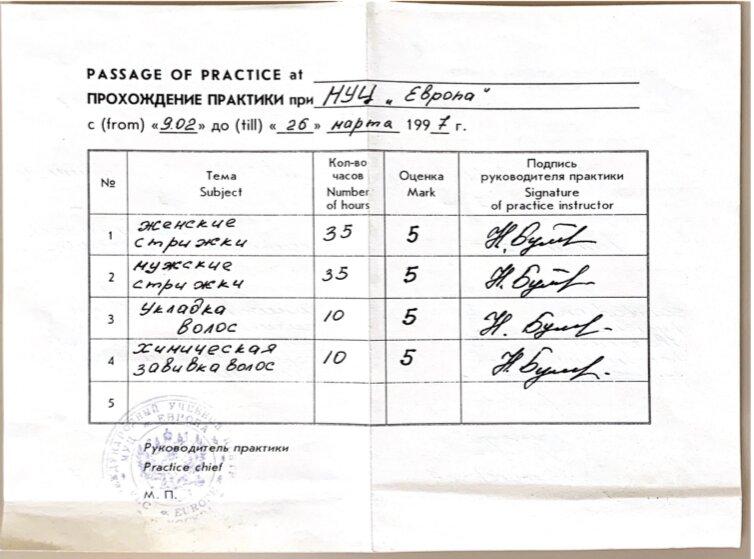 PASSAGE OF PRACTICE at
ПРОХОЖДЕНИЕ ПРАКТИКИ при НУЦ „Европа"
с (from) «9.02» до (till) «26» марта 1997 г.
№ Тема Subject Кол-во часов Number of hours Оценка Mark Подпись руководителя практики Signature of practice instructor
1 женские стрижки 35 5
2 мужские стрижки 35 5
3 Укладка волос 10 5
4 Химическая завивка волос 10 5
5
Руководитель практики
Practice chief
М. П.